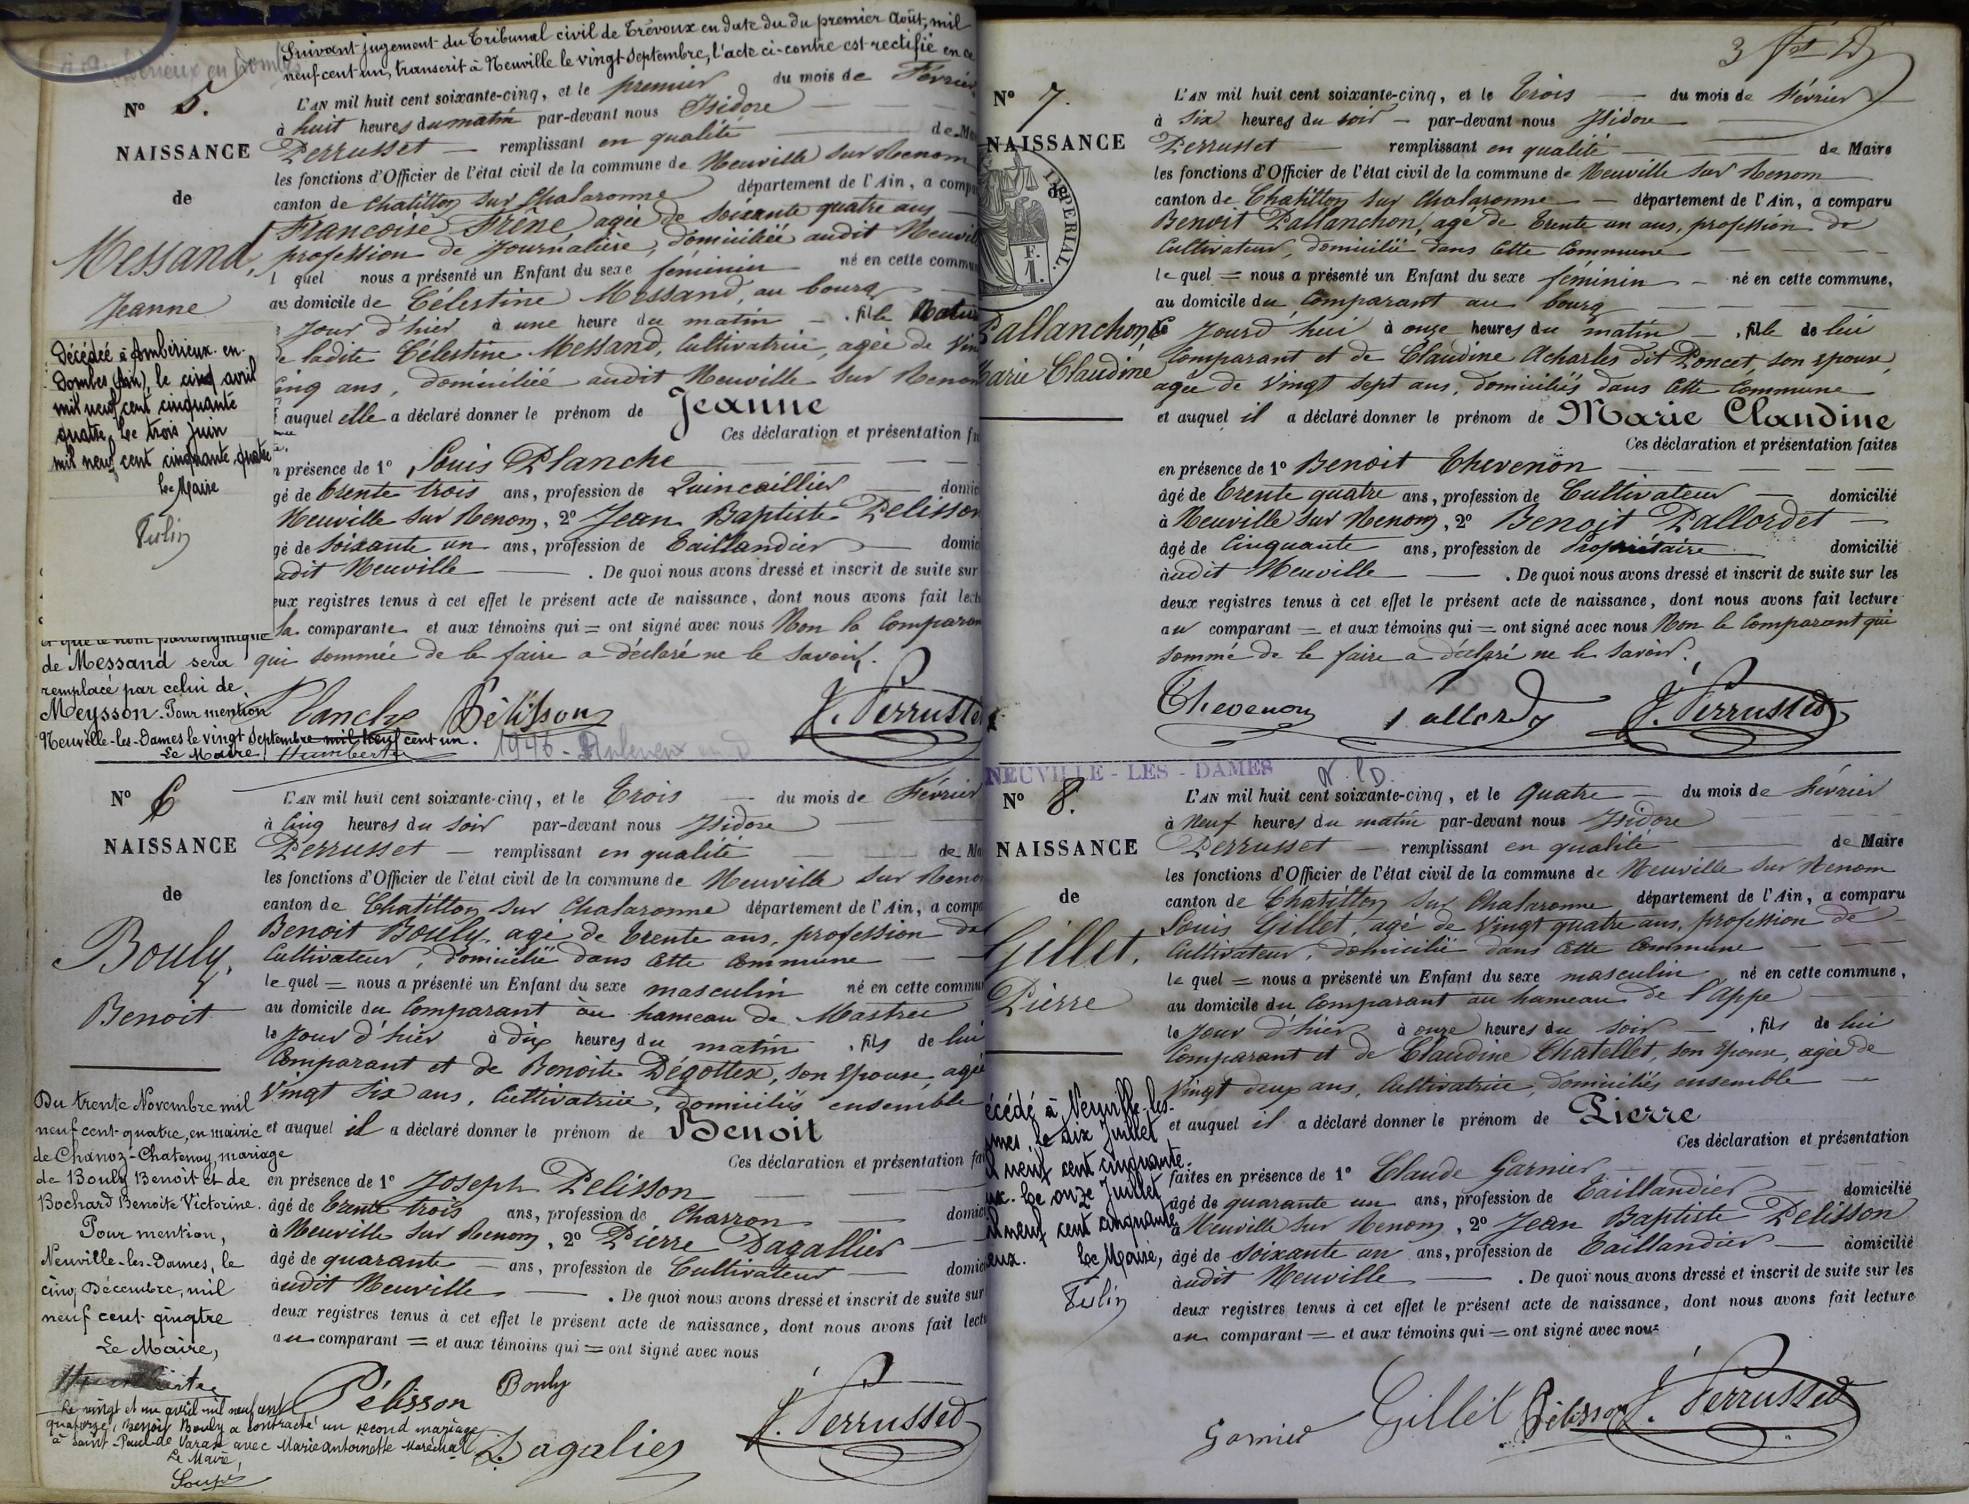 Suivant jugement du Tribunal civil de Trévoux en date du du premier Août, mil
neuf cent un, transcrit à Neuville le vingt Septembre, l'acte ci-contre est rectifié en ce
N° 5.
NAISSANCE
de
Messand,
Jeanne
Décédée à Ambérieux-en-
Dombes (Ain), le cinq avril
mil neuf cent cinquante
quatre. Le trois juin
mil neuf cent cinquante quatre
Le Maire
et que le nom patronymique
de Messand sera
remplacé par celui de
Meysson. Pour mention
Neuville-les-Dames le vingt Septembre mil neuf cent un.
Le Maire, Humbert
L'AN mil huit cent soixante-cinq, et le premier du mois de Février
à huit heures du matin par-devant nous Isidore
Perrusset remplissant en qualité de Ma
les fonctions d'Officier de l'état civil de la commune de Neuville sur Renom
canton de Chatillon sur Chalaronne département de l'Ain, a compa
Françoise Frêne, agée de soixante quatre ans
profession de Journalière, domiciliée audit Neuvil
l quel nous a présenté un Enfant du sexe féminin né en cette commun
au domicile de Célestine Messand, au bourg
Jour d'hier à une heure du matin , fille Natu
de ladite Célestine Messand, Cultivatrice, agée de Vin
cinq ans, domiciliée audit Neuville sur Renom
auquel elle a déclaré donner le prénom de Jeanne
Ces déclaration et présentation fa
n présence de 1° Louis Planche
gé de trente trois ans, profession de Quincaillier domic
Neuville sur Renom, 2° Jean Baptiste Pelisson
gé de soixante un ans, profession de Taillandier domic
udit Neuville . De quoi nous avons dressé et inscrit de suite sur
eux registres tenus à cet effet le présent acte de naissance, dont nous avons fait lect
la comparante et aux témoins qui = ont signé avec nous Non la Comparan
qui sommée de le faire a déclaré ne le savoir.
Planche Pélisson J. Perrusset
N° 6
NAISSANCE
de
Bouly,
Benoit
Du trente Novembre mil
neuf cent quatre, en mairie
de Chanoz-Chatenay, mariage
de Bouly Benoit et de
Bochard Benoite Victorine.
Pour mention,
Neuville-les-Dames, le
cinq Décembre, mil
neuf cent quatre
Le Maire,
Le vingt et un avril mil neuf cent
quatorze, Benoit Bouly a contracté un second mariage
à Saint-Paul-de Varax avec Marie antoinette Maréchal
Le Maire,
L'AN mil huit cent soixante-cinq, et le Trois du mois de Février
à Cinq heures du soir par-devant nous Isidore
Perrusset remplissant en qualité de Ma
les fonctions d'Officier de l'état civil de la commune de Neuville sur Renom
canton de Chatillon sur Chalaronne département de l'Ain, a compa
Benoit Bouly, agé de trente ans, profession de
Cultivateur, domicilié dans cette commune
le quel = nous a présenté un Enfant du sexe masculin né en cette commun
au domicile du Comparant au hameau de Mastru
le Jour d'hier à dix heures du matin , fils de lui
Comparant et de Benoite Dégottex, son Epouse, agée
Vingt six ans, Cultivatrice, domiciliés ensemble
et auquel il a déclaré donner le prénom de Benoit
Ces déclaration et présentation fai
en présence de 1° Joseph Pelisson
âgé de trente trois ans, profession de Charron domic
à Neuville sur Renom, 2° Pierre Dagallier
âgé de quarante ans, profession de Cultivateur domic
àudit Neuville . De quoi nous avons dressé et inscrit de suite sur
deux registres tenus à cet effet le présent acte de naissance, dont nous avons fait lectu
au comparant = et aux témoins qui = ont signé avec nous
Pélisson Bouly
Dagalier J. Perrusset
3
N° 7.
NAISSANCE
de
IMPERIAL.
F.
1.
Pallanchon,
Marie Claudine
L'AN mil huit cent soixante-cinq, et le Trois du mois de Février
à six heures du soir par-devant nous Isidore
Perrusset remplissant en qualité de Maire
les fonctions d'Officier de l'état civil de la commune de Neuville sur Renom
canton de Chatillon sur Chalaronne département de l'Ain, a comparu
Benoit Pallanchon, agé de trente un ans, profession de
Cultivateur, domicilié dans cette Commune
le quel = nous a présenté un Enfant du sexe féminin né en cette commune,
au domicile du Comparant au bourg
le Jourd'hui à onze heures du matin , fille de lui
Comparant et de Claudine Acharles dit Poncet, son Epouse,
agée de Vingt sept ans, domiciliés dans cette Commune
et auquel il a déclaré donner le prénom de Marie Claudine
Ces déclaration et présentation faites
en présence de 1° Benoit Thevenon
âgé de trente quatre ans, profession de Cultivateur domicilié
à Neuville sur Renom, 2° Benoit Pallordet
âgé de Cinquante ans, profession de Propriétaire domicilié
àudit Neuville . De quoi nous avons dressé et inscrit de suite sur les
deux registres tenus à cet effet le présent acte de naissance, dont nous avons fait lecture
au comparant = et aux témoins qui = ont signé avec nous Non le Comparant qui
sommé de le faire a déclaré ne le savoir.
Thevenon Pallordet J. Perrusset
NEUVILLE - LES - DAMES N. l. D.
N° 8.
NAISSANCE
de
Gillet,
Pierre
écédé à Neuville-les-
mes, le dix Juillet
l neuf cent cinquante.
ux. Le onze Juillet
l neuf cent cinquante
eux. Le Maire,
L'AN mil huit cent soixante-cinq, et le Quatre du mois de Février
à Neuf heures du matin par-devant nous Isidore
Perrusset remplissant en qualité de Maire
les fonctions d'Officier de l'état civil de la commune de Neuville sur Renom
canton de Chatillon sur Chalaronne département de l'Ain, a comparu
Louis Gillet, agé de Vingt quatre ans, profession de
Cultivateur, domicilié dans cette Commune
le quel = nous a présenté un Enfant du sexe masculin né en cette commune,
au domicile du Comparant au hameau de l'Appe
le Jour d'hier à onze heures du soir , fils de lui
Comparant et de Claudine Chatellet, son Epouse, agée de
Vingt deux ans, Cultivatrice, domiciliés ensemble
et auquel il a déclaré donner le prénom de Pierre
Ces déclaration et présentation
faites en présence de 1° Claude Garnier
âgé de quarante un ans, profession de Taillandier domicilié
à Neuville sur Renom, 2° Jean Baptiste Pelisson
âgé de soixante un ans, profession de Taillandier domicilié
àudit Neuville . De quoi nous avons dressé et inscrit de suite sur les
deux registres tenus à cet effet le présent acte de naissance, dont nous avons fait lecture
au comparant = et aux témoins qui = ont signé avec nous
Garnier Gillet Pélisson J. Perrusset